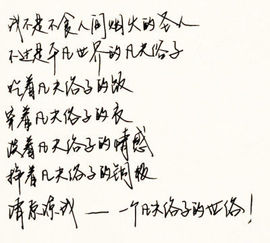 我不是不食人间烟火的圣人
不过是平凡世界的凡夫俗子
吃着凡夫俗子的饭
穿着凡夫俗子的衣
谈着凡夫俗子的情感
挣着凡夫俗子的铜板
请原谅我——一个凡夫俗子的世俗！